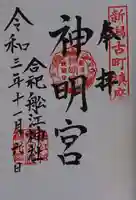 新潟古町鎮座
奉拝
神明宮
合祀 船江神社
令和三年十一月